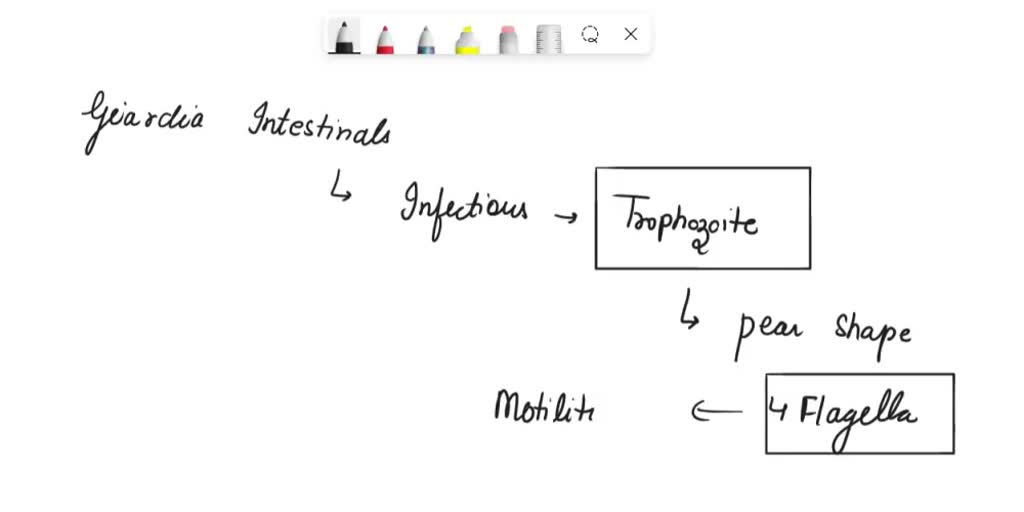 Giardia Intestinals
↳ Infectious → Trophozoite
↳ pear shape
Motilit ← 4 Flagella